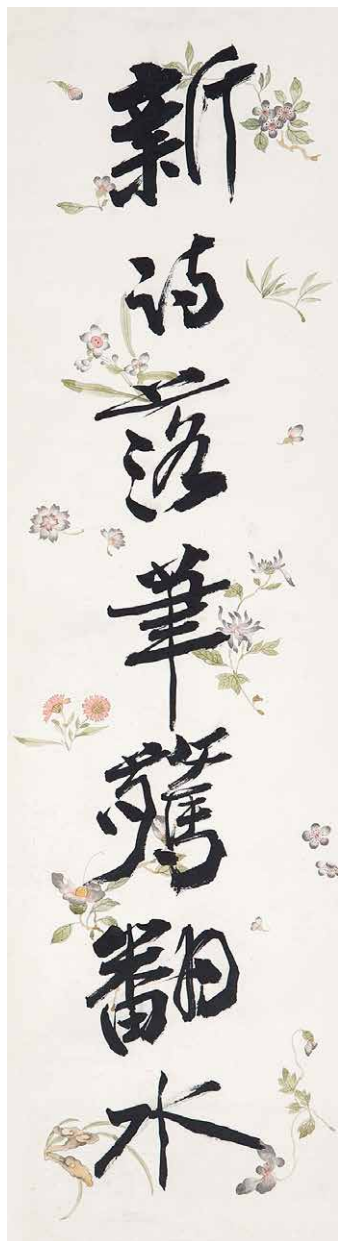 新詩落筆驚翻水